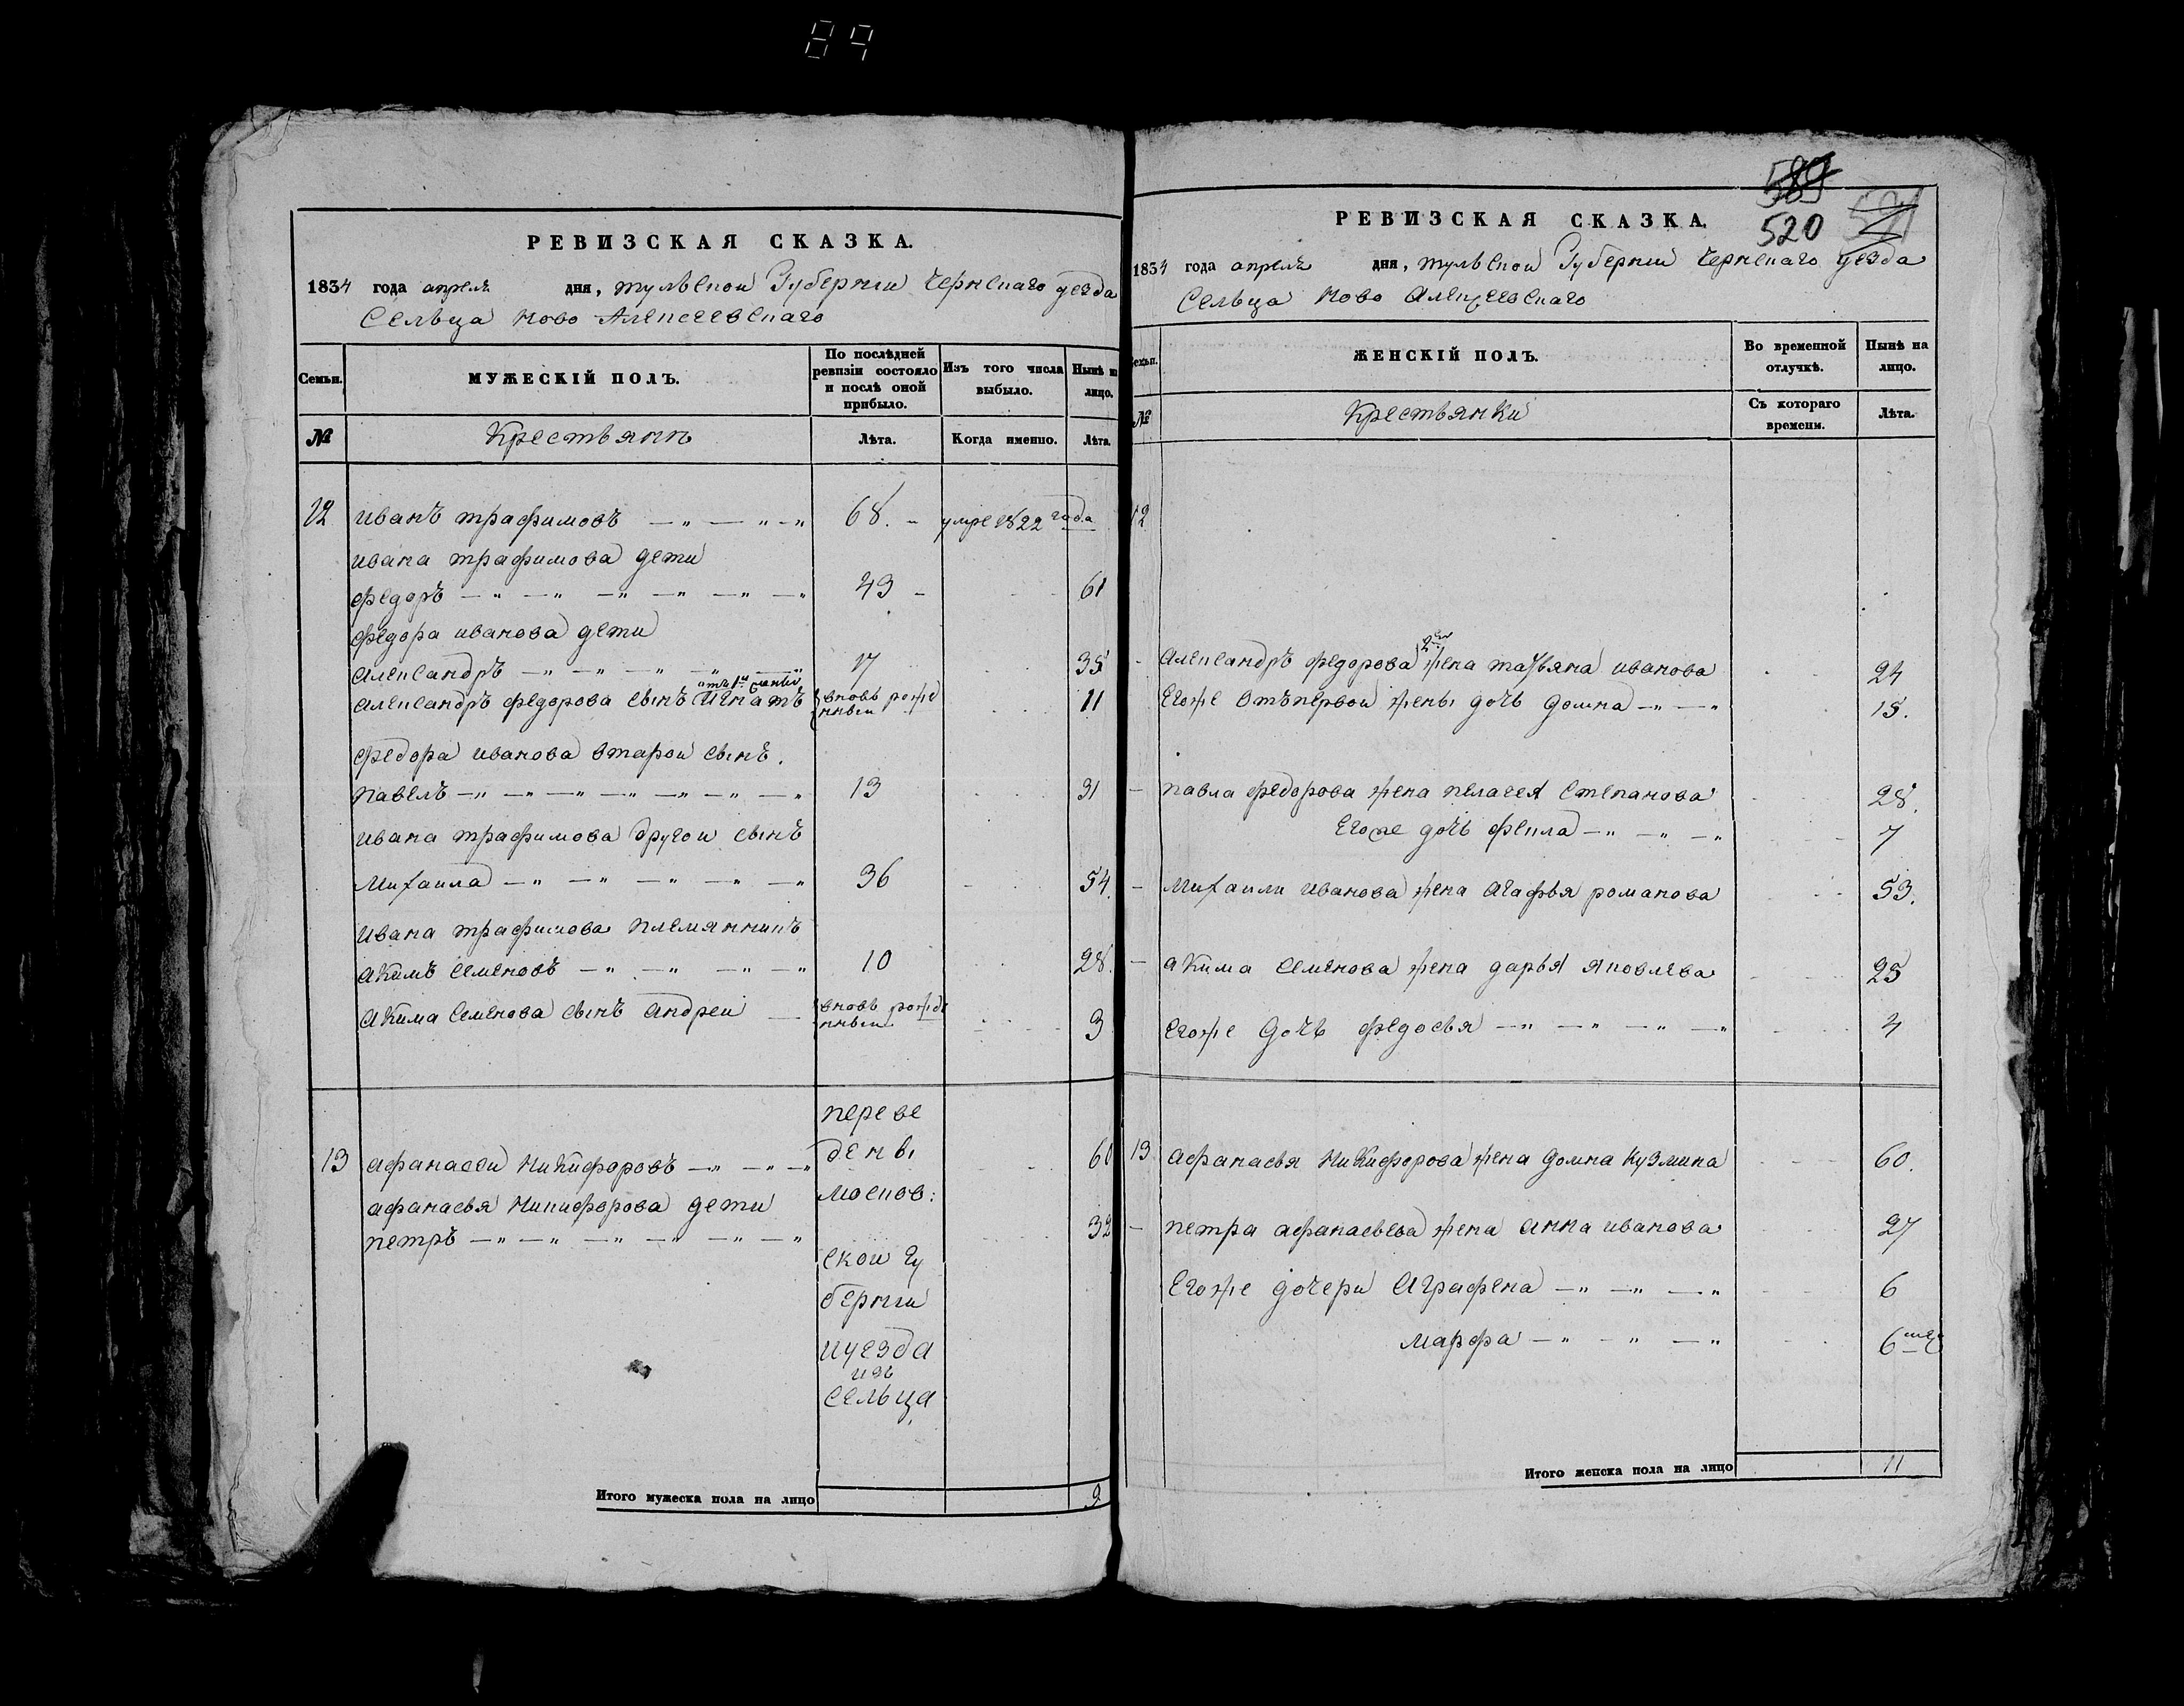 89
РЕВИЗСКАЯ СКАЗКА.
1834 года апреля дня, тульской Губернии Чернскаго уезда
Сельца Ново Алексеевскаго
Семьи.
МУЖЕСКІЙ ПОЛЪ.
По послѣдней ревизіи состояло и послѣ оной прибыло.
Изъ того числа выбыло.
Нынѣ на лицо.
№
Крестьянъ
Лѣта.
Когда именно.
Лѣта.
12 иванъ трафимовъ 68. умре 1822 года
ивана трафимова дети
федоръ 43 61
федора иванова дети
александръ 17 35
от 1й
александръ федорова сынъ Игнатъ вновь рожденныи 11
федора иванова втарои сынъ.
павелъ 13 31
ивана трафимова другои сынъ
михаила 36 54.
ивана трафимова племянникъ
акимъ семеновъ 10 28.
акима семенова сынъ андреи вновь рожденныи 3
13 афанасеи никифоровъ 60
афанасья никифорова дети
петръ 32
переве
дены
москов:
скои гу
бернии
иуезда
изъ
сельца
Итого мужеска пола на лицо 9
589
520
521
РЕВИЗСКАЯ СКАЗКА.
1834 года апреля дня, тульской Губернии Чернскаго уезда
Сельца Ново алексеевскаго
Семьи.
ЖЕНСКІЙ ПОЛЪ.
Во временной отлучкѣ.
Нынѣ на лицо.
№
Крестьянки
Съ котораго времени.
Лѣта.
12
2й
александръ федорова жена татьяна иванова 24
Егоже отъпервои жены дочь домна 15.
павла федорова жена пелагея степанова 28.
Егоже дочь фекла 7
михаили иванова жена агафья романова 53.
акима семенова жена дарья яковлева 25
Егоже дочь федосья 4
13 афанасья никифорова жена домна кузмина 60.
петра афанасьева жена анна иванова 27
Егоже дочери аграфена 6
марфа 6 ме
Итого женска пола на лицо 11